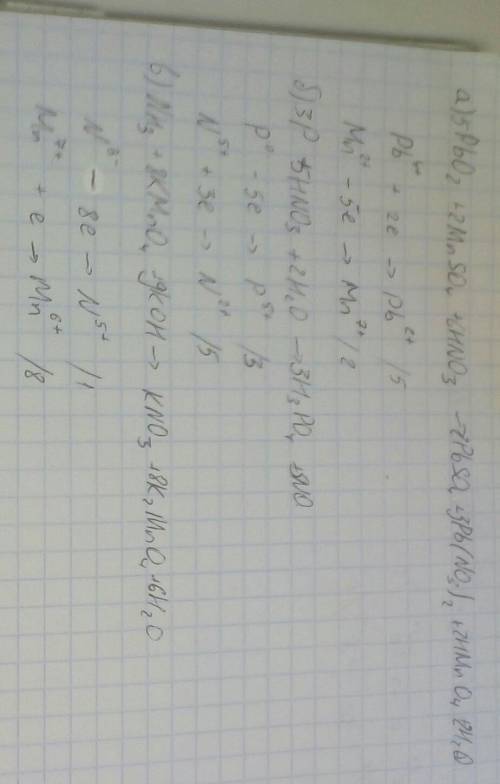 а) 5PbO₂ + 2MnSO₄ + 6HNO₃ → 2PbSO₄ + 3Pb(NO₃)₂ + 2HMnO₄ + 2H₂O
Pb⁴⁺ + 2e → Pb²⁺ /5
Mn²⁺ - 5e → Mn⁷⁺ /2
б) 3P + 5HNO₃ + 2H₂O → 3H₃PO₄ + 5NO
P⁰ - 5e → P⁵⁺ /3
N⁵⁺ + 3e → N²⁺ /5
в) NH₃ + 8KMnO₄ + 9KOH → KNO₃ + 8K₂MnO₄ + 6H₂O
N³⁻ - 8e → N⁵⁺ /1
Mn⁷⁺ + e → Mn⁶⁺ /8